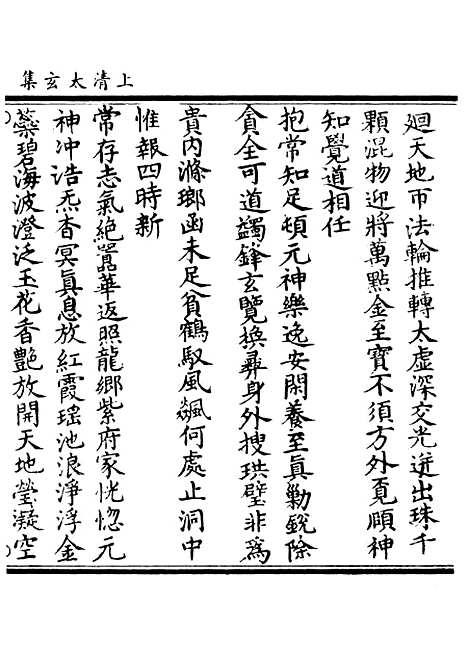 上清太玄集
廻天地帀法輪推轉太虛深交光迸出珠千
顆混物迎將萬點金至寶不須方外覓願神
知覺道相任
抱常知足頓元神樂逸安閑養至眞勦銳除
貪全可道蠲鋒玄覽換尋身外搜珙璧非爲
貴内滌瑯函未足貧鶴馭風飆何處止洞中
惟報四時新
常存志氣絕囂華返照龍鄉紫府家恍惚元
神冲浩炁杳冥眞息放紅霞瑶池浪淨浮金
蘂碧海波澄泛玉花香艷放開天地瑩凝空